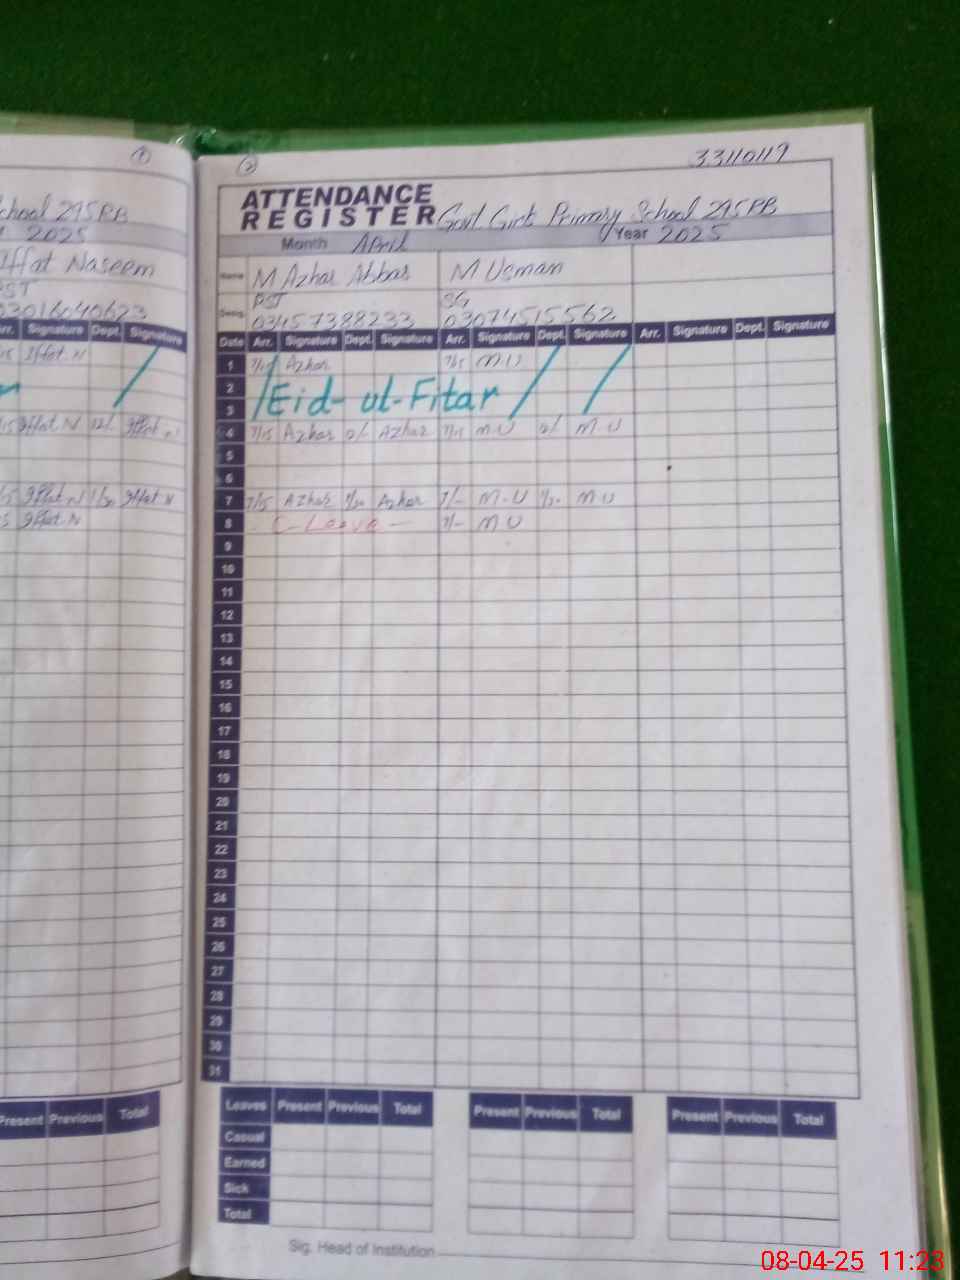 ①
School 295RB
2025
Iffat Naseem
PST
03016040623
Arr. Signature Dept. Signature
Iffat. N
Iffat. N 12/- Iffat. N
Iffat. N 1/30 Iffat. N
Iffat. N
Present Previous Total
② 33110119
ATTENDANCE
REGISTER Govt Girls Primary School 295RB
Month April Year 2025
Name M Azhar Abbas M Usman
Desig. PST SG
03457388233 03074515562
Date Arr. Signature Dept. Signature Arr. Signature Dept. Signature Arr. Signature Dept. Signature
1 7/15 Azhar 7/15 M.U
2 Eid-ul-Fitar
3
4 7/15 Azhar 12/- Azhar 7/15 M.U 12/- M.U
5
6
7 7/15 Azhar 1/30 Azhar 7/- M.U 1/30 M.U
8 C-Leave 7/- M U
9
10
11
12
13
14
15
16
17
18
19
20
21
22
23
24
25
26
27
28
29
30
31
Leaves Present Previous Total Present Previous Total Present Previous Total
Casual
Earned
Sick
Total
Sig. Head of Institution
08-04-25 11:23